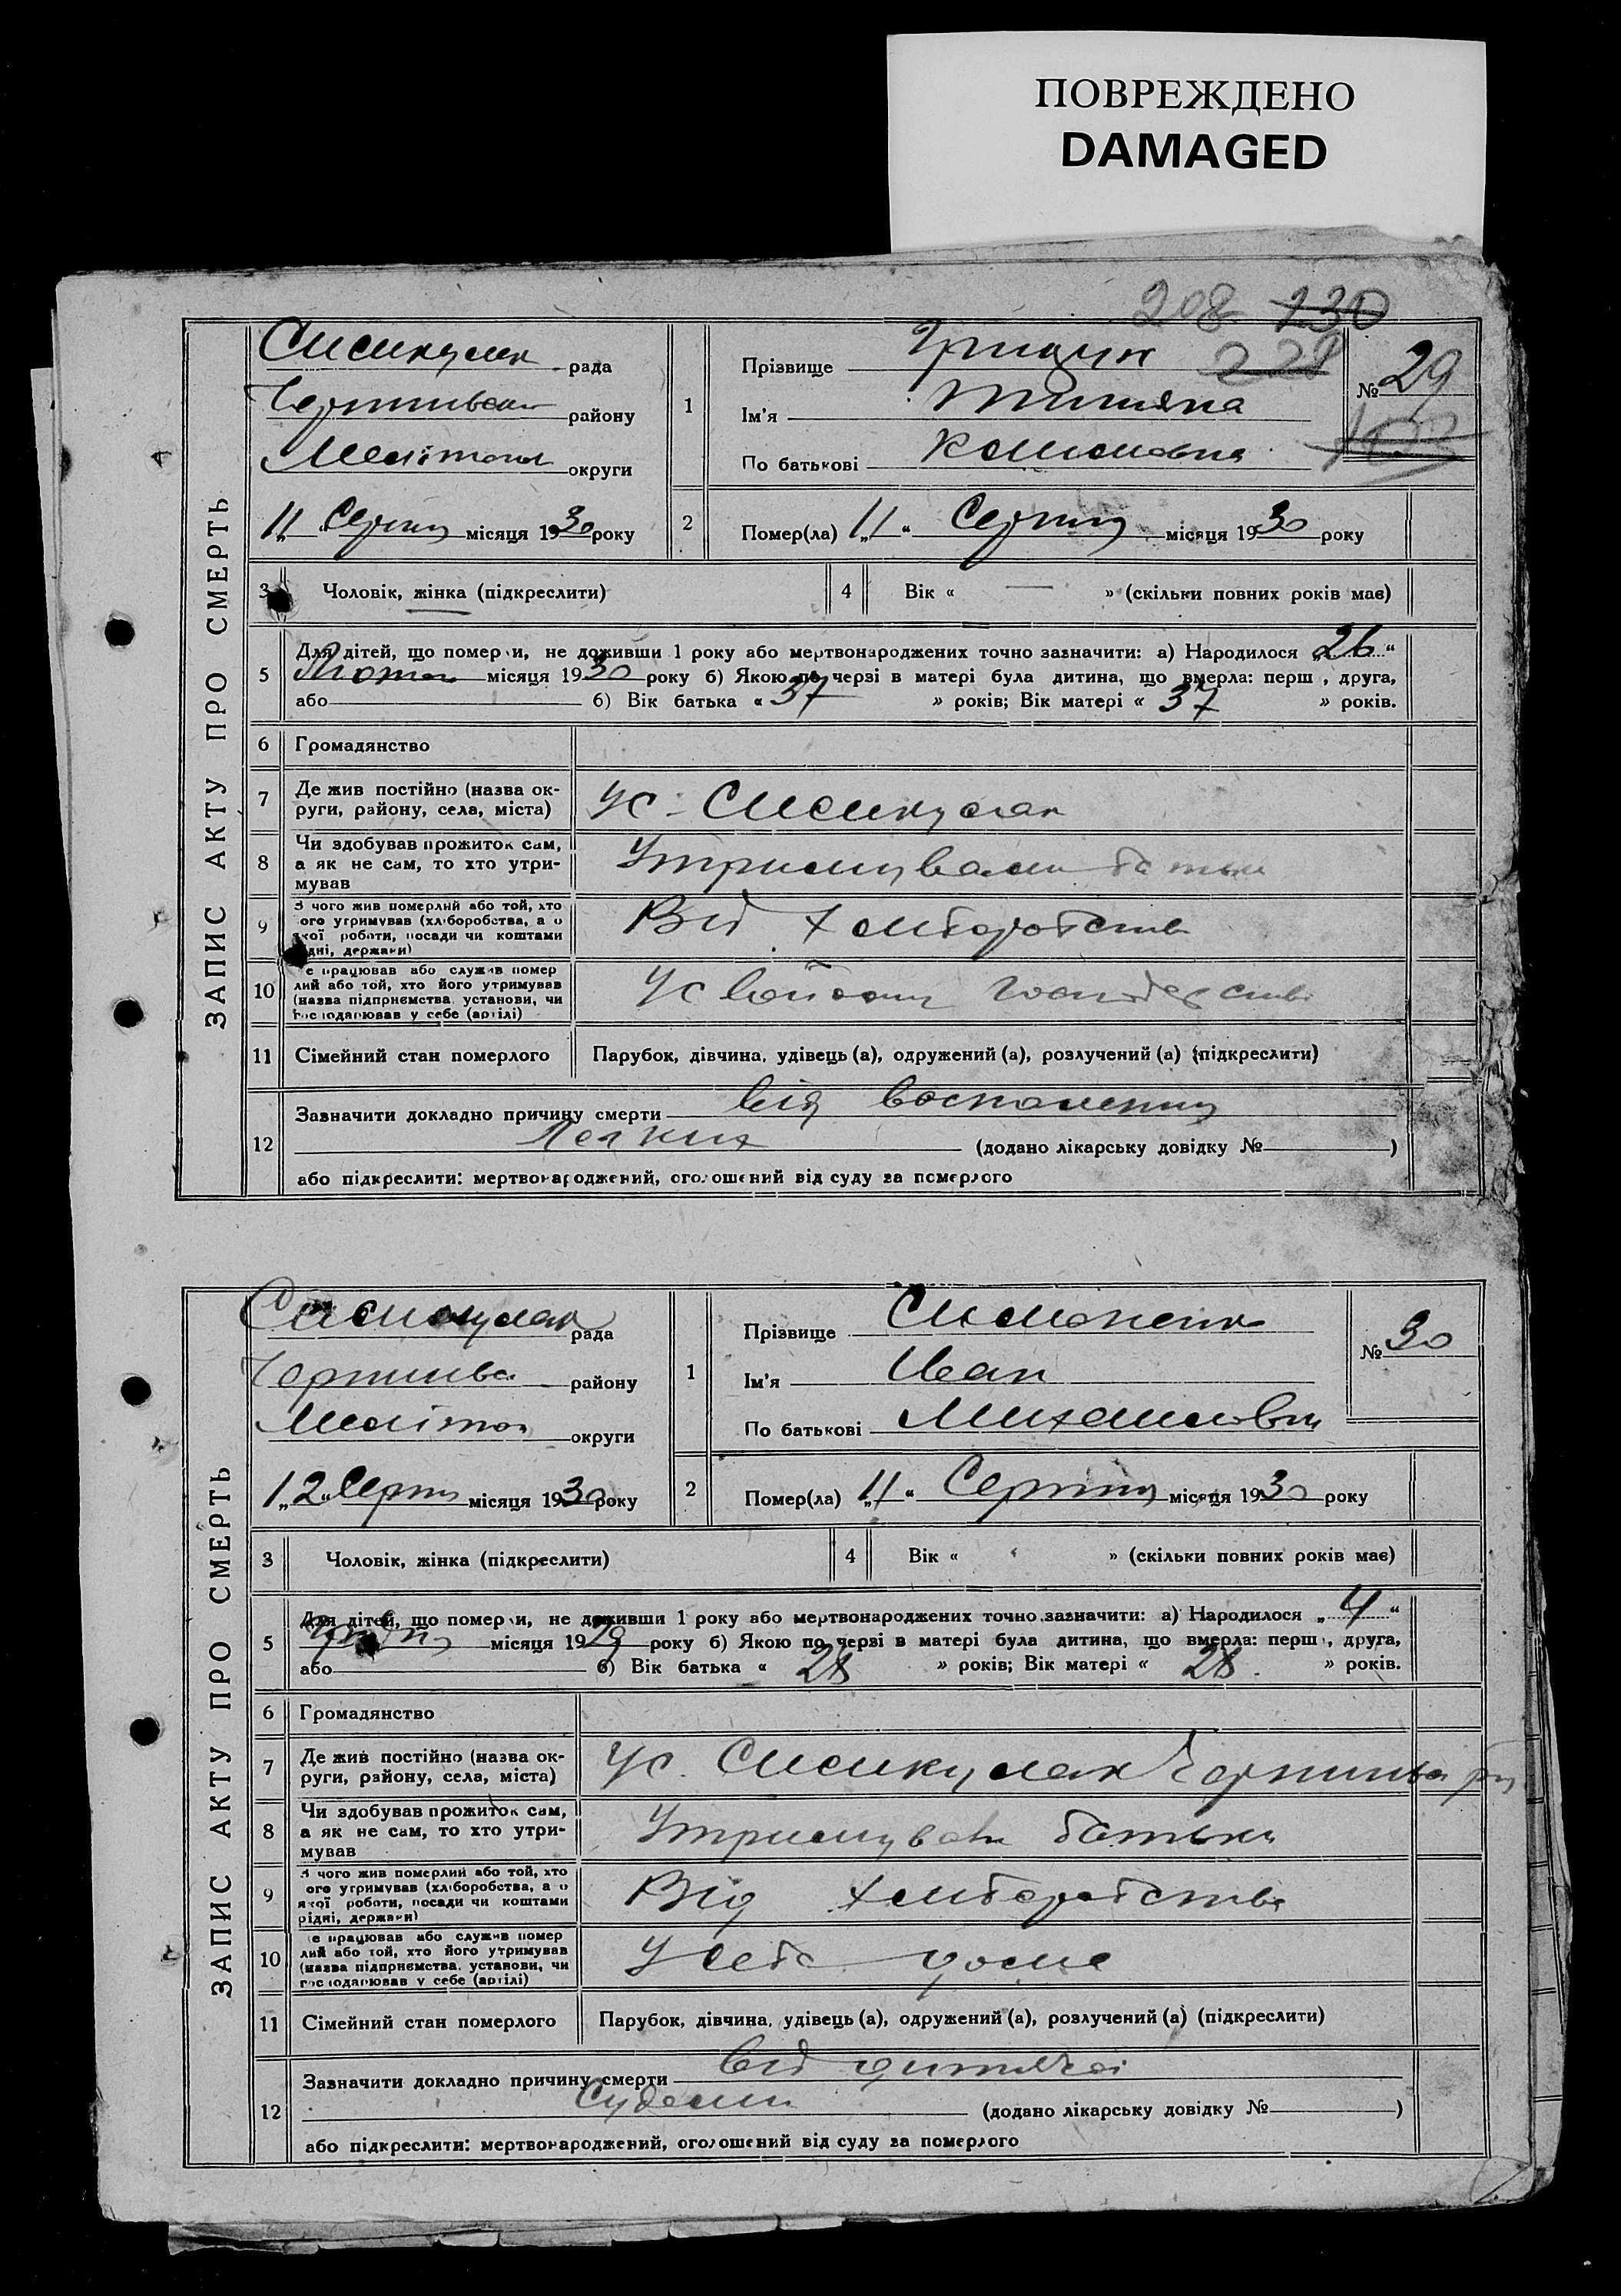 ПОВРЕЖДЕНО
DAMAGED
208 130
228
рада
району
округи
11 Серпня місяця 1930 року
1
Прізвище Грицун
Ім'я
По батькові
№ 29
2
Помер(ла) „11“ Серпня місяця 1930 року
3 Чоловік, жінка (підкреслити)
4 Вік « — » (скільки повних років має)
5
Для дітей, що померли, не доживши 1 року або мертвонароджених точно зазначити: а) Народилося „26“
Лютого місяця 1930 року б) Якою по черзі в матері була дитина, що вмерла: перш , друга,
або б) Вік батька « 37 » років; Вік матері « 37 » років.
6 Громадянство
7 Де жив постійно (назва округи, району, села, міста)
Ус.
8 Чи здобував прожиток сам, а як не сам, то хто утримував
Утримували батьки
9 З чого жив померлий або той, хто
ого утримував (хліборобства, а о
якої роботи, посади чи коштами
рідні, держави)
Від хліборобства
10 е працював або служив помер
лий або той, хто його утримував
(назва підприємства, установи, чи
господарював у себе (артілі)
11 Сімейний стан померлого
Парубок, дівчина, удівець (а), одружений (а), розлучений (а) (підкреслити)
12
Зазначити докладно причину смерти від воспаления
Легких (додано лікарську довідку № )
або підкреслити: мертвонароджений, оголошений від суду за померлого
ЗАПИС АКТУ ПРО СМЕРТЬ
рада
району
округи
„12“ Серпня місяця 1930 року
1
Прізвище Симоненко
Ім'я Иван
По батькові Михайлович
№ 30
2
Помер(ла) „11“ Серпня місяця 1930 року
3 Чоловік, жінка (підкреслити)
4 Вік « » (скільки повних років має)
5
Для дітей, що померли, не доживши 1 року або мертвонароджених точно зазначити: а) Народилося „4“
місяця 1929 року б) Якою по черзі в матері була дитина, що вмерла: перш , друга,
або б) Вік батька « 28 » років; Вік матері « 28 » років.
6 Громадянство
7 Де жив постійно (назва округи, району, села, міста)
Ус.
8 Чи здобував прожиток сам, а як не сам, то хто утримував
Утримували батьки
9 З чого жив померлий або той, хто
ого утримував (хліборобства, а о
якої роботи, посади чи коштами
рідні, держави)
Від хліборобства
10 е працював або служив помер
лий або той, хто його утримував
(назва підприємства, установи, чи
господарював у себе (артілі)
У себе дома
11 Сімейний стан померлого
Парубок, дівчина, удівець (а), одружений (а), розлучений (а) (підкреслити)
12
Зазначити докладно причину смерти від дитячої
(додано лікарську довідку № )
або підкреслити: мертвонароджений, оголошений від суду за померлого
ЗАПИС АКТУ ПРО СМЕРТЬ